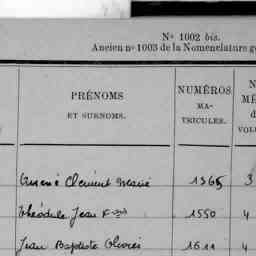 N° 1002 bis.
Ancien n° 1003 de la Nomenclature g
PRÉNOMS
ET SURNOMS.
NUMÉROS
MA-
TRICULES.
N
MÉ
d
VOL
Clément Marie 1365 3
Théodule Jean 1550 4
Jean Baptiste Olivier 1611 4